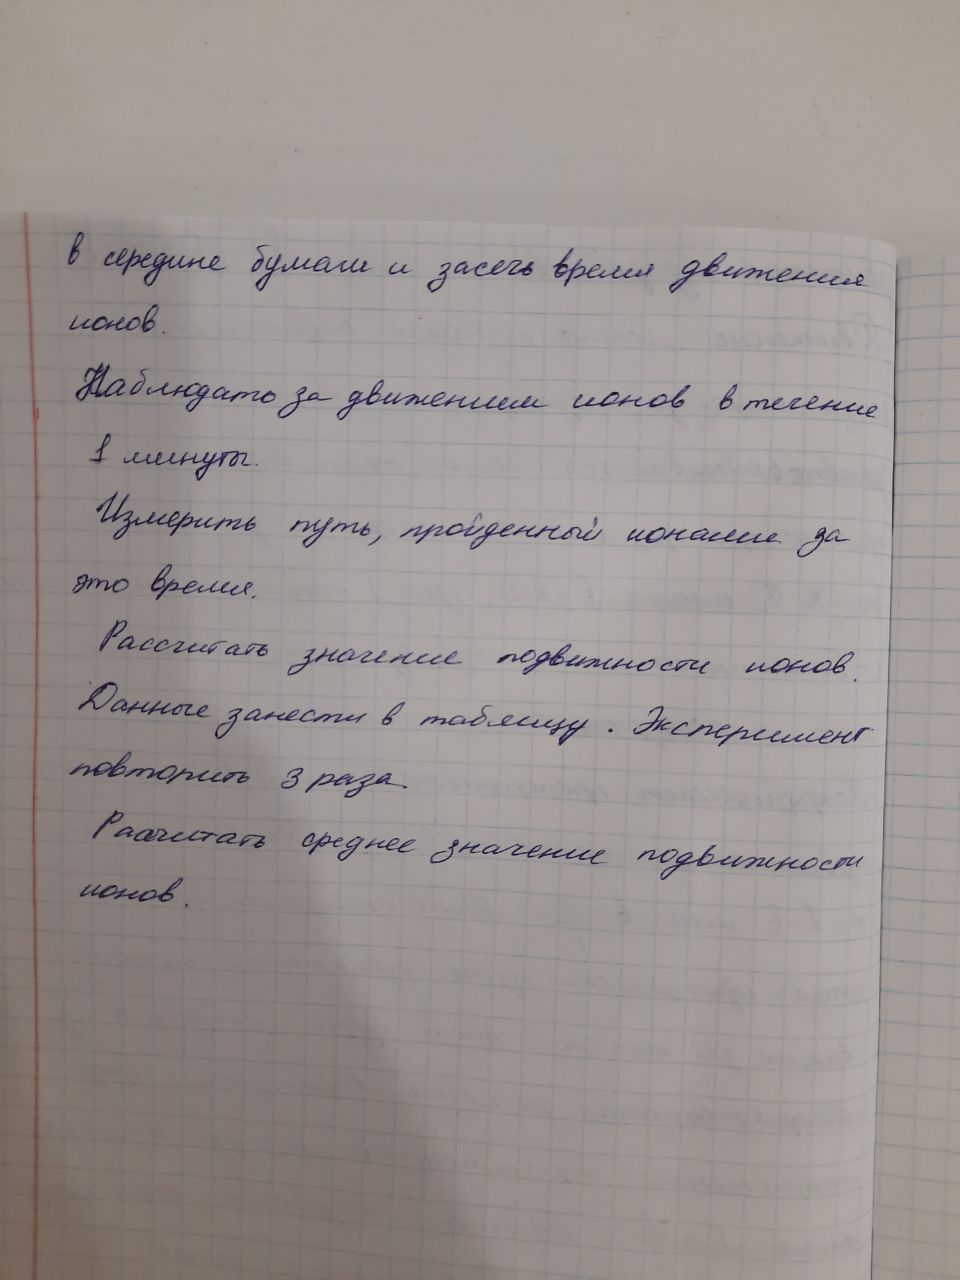 в середине бумаги и засечь время движения
ионов.
Наблюдать за движением ионов в течение
1 минуты.
Измерить путь, пройденный ионами за
это время.
Рассчитать значение подвижности ионов.
Данные занести в таблицу. Эксперимент
повторить 3 раза.
Рассчитать среднее значение подвижности
ионов.